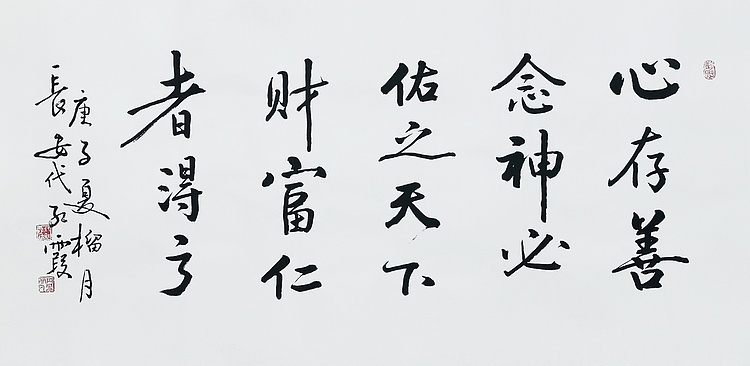 心存善
念神必
佑之天下
财富仁
者得
庚子夏榴月
長安代红霞